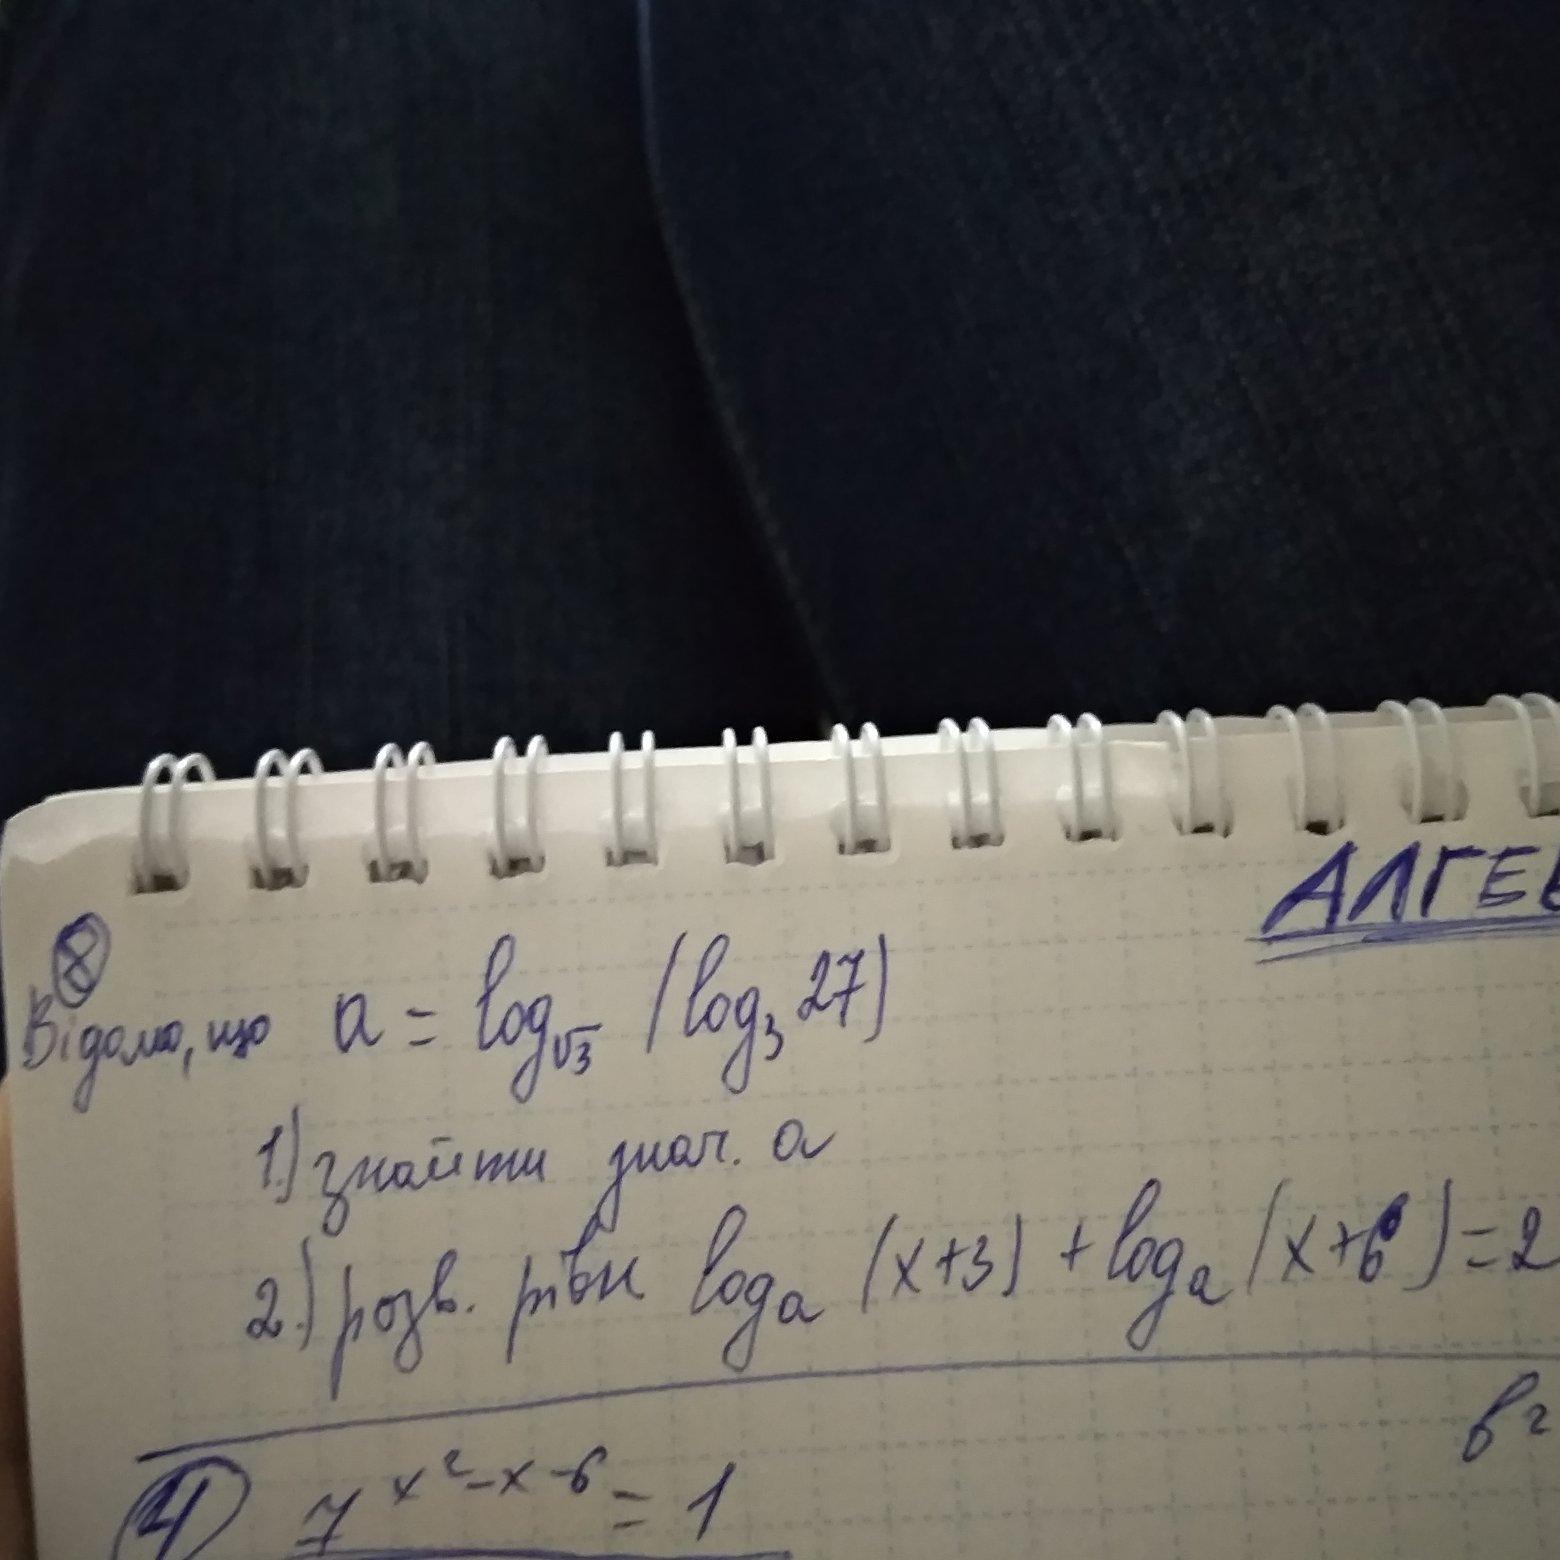 АЛГЕБ
8
Відомо, що a = log√3 (log3 27)
1.) знайти знач. a
2.) розв. рівн loga (x+3) + loga (x+6) = 2
в г
4 7^x²-x-6 = 1